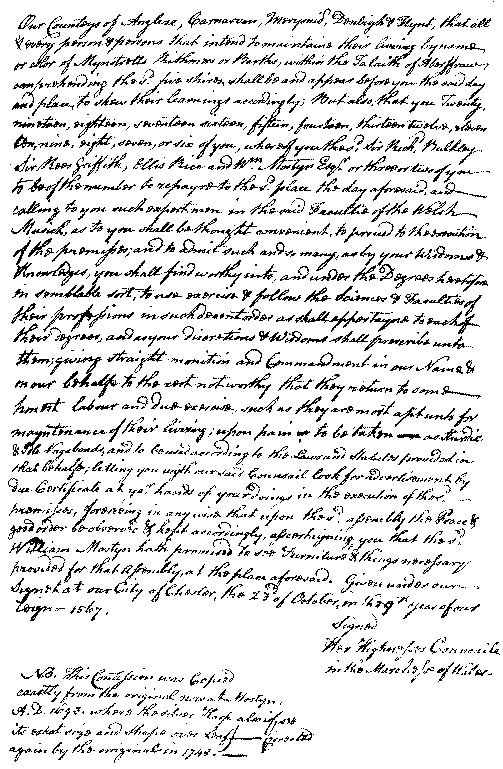 Our Counteys of Anglese, Carnarvon, Meryonid, Denbigh & Flynt, that all
& every person & persons that intend to maintaine their living by name
or color of Mynstrells Rithmers or Barths, within the Talaith of Aberffrowe,
comprehending the sd. five shires, shall be and appear before you the said day
and place, to shew their learnings accordingly; But also, that you Twenty,
nineteen, eighteen, seventeen sixteen, fifteen, fourteen, thirteen twelve, eleven
ten, nine, eight, seven, or six of you, whereof you the sd. Sir Rich: Bulkley
Sir Rees Griffith, Ellis Price and Wm Mostyn Esqs. or three or two of you
to be of the number to repayre to the sd. place the day aforesaid, and
calling to you such expert men in the said Facultie of the Welsh
Musick, as to you shall be thought convenient, to proceed to the execution
of the premisses; and to admit such and so many, as by your Wisdoms &
Knowledges, you shall find worthy into, and under the Degrees heretofore
in semblable sort, to use exercise & follow the Sciences & Faculties of
their professions in such decent order as shall appertayne to each of
their degrees, and as your discretions & Wisdoms shall prescribe unto
them; giving straight monition and Commandment in our Name &
in our behalfe to the rest not worthy that they return to some
honest labour and due exercise, such as they are most apt unto for
mayntenance of their living; upon pain to be taken as sturdie
& Idle Vagabonds, and to be used according to the Laws and Statutes provided in
that behalfe; letting you wyth our said Counsail look for advertisement by
due Certificate at yor. hands of your doings in the execution of the sd.
premisses, foreseeing in any wise that upon the sd. assembly the Peace &
good order be observed & kept accordingly, assertayning you that the sd.
William Mostyn hath promised to see Furniture & things necessary
provided for that Assembly, at the place aforesaid. Given under our
Signet at our City of Chester, the 23d of October, in the 9th year of our
Reign - 1567.
Signed
Her Highnesses Counsaile
in the Marches of Wales.
NB. This Comission was Copied
exactly from the original now at Mostyn,
A.D. 1693. where the silver Harp also is, see
its exact size and Shape over leaf corrected
again by the original in 1743.